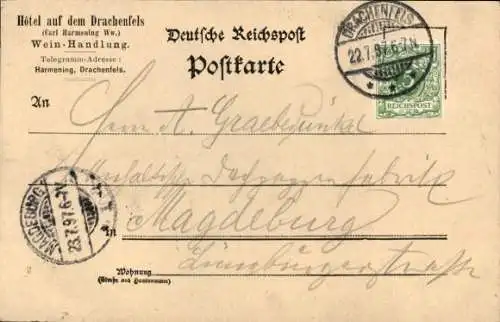 Hôtel auf dem Drachenfels
(Carl Harmening Ww.)
Wein-Handlung.
Telegramm-Adresse:
Harmening, Drachenfels.
Deutsche Reichspost
Postkarte
DRACHENFELS
22.7.97.6-7N.
REICHSPOST
An
Herrn A. Graebedünkel
Dachpappenfabrik
in
Magdeburg
MAGDEBURG
23.7.97.6-7N
Wohnung
(Straße und Hausnummer)
2